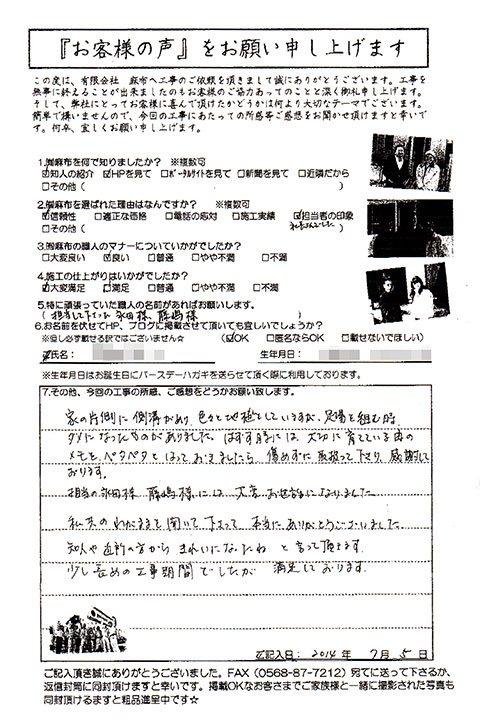 『お客様の声』をお願い申し上げます
この度は、有限会社 麻布へ工事のご依頼を頂きまして誠にありがとうございます。工事を
無事に終えることが出来ましたのもお客様のご協力あってのことと深く御礼申し上げます。
そして、弊社にとってお客様に喜んで頂けたかどうかは何より大切なテーマでございます。
簡単で構いませんので、今回の工事にあたっての所感等ご感想をお聞かせ頂けますと幸いで
す。何卒、宜しくお願い申し上げます。
1.㈲麻布を何で知りましたか? ※複数可
☑知人の紹介 ☑HPを見て □ポータルサイトを見て □新聞を見て □近隣だから
□その他( )
2.㈲麻布を選ばれた理由はなんですか? ※複数可
☑信頼性 □適正な価格 □電話の応対 □施工実績 ☑担当者の印象
□その他( )
3.㈲麻布の職人のマナーについていかがでしたか?
□大変良い ☑良い □普通 □やや不満 □不満
4.施工の仕上がりはいかがでしたか?
☑大変満足 □満足 □普通 □やや不満 □不満
5.特に頑張っていた職人の名前があればお願いします。
(担当して下さった 永田様、藤嶋様 )
6.お名前を伏せてHP、ブログに掲載させて頂いても宜しいでしょうか?
※但し必ず載せる訳ではございません☆ (☑OK □匿名ならOK □載せないでほしい)
氏名: 生年月日:
※生年月日はお誕生日にバースデーハガキを送らせて頂く際に利用しております。
7.その他、今回の工事の所感、ご感想をどうかお願い致します。
家の片側に側溝があり、色々と地植えしていますが、足場を組む時
ダメになったものがありました。はずす時には 大切に育てている由の
メモを、ペタペタと はっておきましたら 傷めずに 取扱って下さり、感謝して
おります。
担当の永田様 藤嶋様には 大変 お世話になりました
私共の わがままを 聞いて 下さって 本当に ありがとうございました
知人や 近所の方から きれいになったね と言って頂きます。
少し長めの工事期間でしたが 満足しております。
ご記入日: 2014 年 7月 5 日
ご記入頂き誠にありがとうございました。FAX(0568-87-7212)宛てに送って下さるか、
返信封筒に同封頂けますと幸いです。掲載OKなお客さまでご家族様と一緒に撮影された写真も
同封頂けるますと粗品進呈中です☆